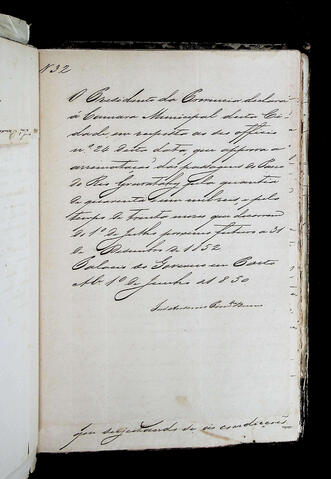 N 32
O Presidente da Provincia declara
á Camara Municipal desta Ci
dade, em resposta ao seo officio
nº 24 desta data, que approva a
arrematação do
do Rio Gravatahy pela quantia
de quarenta e um mil reis, e pelo
tempo de trinta mezes que decorre
do 1º de Julho proximo futuro a 31
de Dezembro de 1852
Palacio do Governo em Porto
Alº 1º de Junho de 1850
por
as condicções